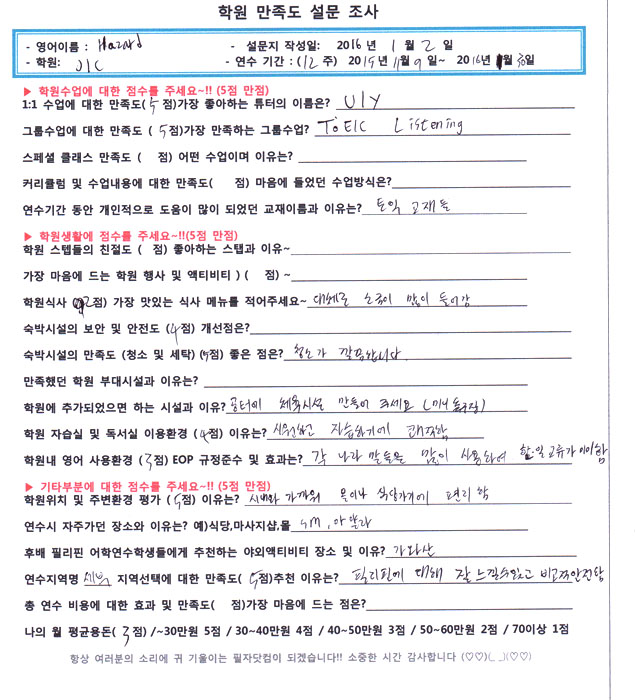 학원 만족도 설문 조사
- 영어이름 : Hazard - 설문지 작성일: 2016 년 1 월 2 일
- 학원: JIC - 연수 기간 : (12 주) 2015년 11월 9일~ 2016년 1월 30일
▶ 학원수업에 대한 점수를 주세요~!! (5점 만점)
1:1 수업에 대한 만족도( 5 점)가장 좋아하는 튜터의 이름은? Uly
그룹수업에 대한 만족도 ( 5 점)가장 만족하는 그룹수업? ToEIC Listening
스페셜 클래스 만족도 ( 점) 어떤 수업이며 이유는?
커리큘럼 및 수업내용에 대한 만족도( 점) 마음에 들었던 수업방식은?
연수기간 동안 개인적으로 도움이 많이 되었던 교재이름과 이유는? 토익 교재들
▶ 학원생활에 점수를 주세요~!!(5점 만점)
학원 스텝들의 친절도 ( 점) 좋아하는 스탭과 이유~
가장 마음에 드는 학원 행사 및 액티비티 ) ( 점) ~
학원식사 ( 2점) 가장 맛있는 식사 메뉴를 적어주세요~ 대체로 소금이 많이 들어감
숙박시설의 보안 및 안전도 ( 4점) 개선점은?
숙박시설의 만족도 (청소 및 세탁) (5점) 좋은 점은? 청소가 깔끔합니다.
만족했던 학원 부대시설과 이유는?
학원에 추가되었으면 하는 시설과 이유? 공터에 체육시설 만들어 주세요 (미니
학원 자습실 및 독서실 이용환경 ( 4점) 이유는? 시원하고 자습하기에 쾌적함
학원내 영어 사용환경 ( 3점) EOP 규정준수 및 효과는? 각 나라 말들을 많이 사용하여 한·일 교류가
▶ 기타부분에 대한 점수를 주세요~!! (5점 만점)
학원위치 및 주변환경 평가 ( 5점) 이유는? 시내와 가까워 몰이나 식당가기에 편리함
연수시 자주가던 장소와 이유는? 예)식당,마사지샵,몰 SM, 아얄라
후배 필리핀 어학연수학생들에게 추천하는 야외액티비티 장소 및 이유? 가와산
연수지역명 세부 지역선택에 대한 만족도( 5점)추천 이유는? 필리핀에 대해 잘 느낄수있고 비교적안전함
총 연수 비용에 대한 효과 및 만족도( 점)가장 마음에 드는 점은?
나의 월 평균용돈( 3점) /~30만원 5점 / 30~40만원 4점 / 40~50만원 3점 / 50~60만원 2점 / 70이상 1점
항상 여러분의 소리에 귀 기울이는 필자닷컴이 되겠습니다!! 소중한 시간 감사합니다 (♡♡)(_ _)(♡♡)